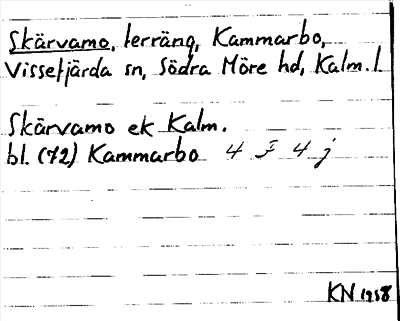 Skärvamo, terräng, Kammarbo,
Vissefjärda sn, Södra Möre hd, Kalm. l.
Skärvamo ek Kalm.
bl. (72) Kammarbo 4 F 4 j
KN 1958